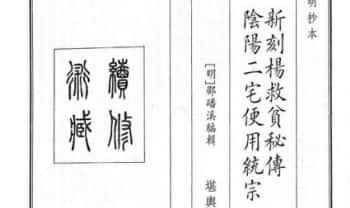 明抄本
新刻楊救貧秘傳
陰陽二宅便用統宗
[明]邵磻溪編輯
堪輿
續修
術藏